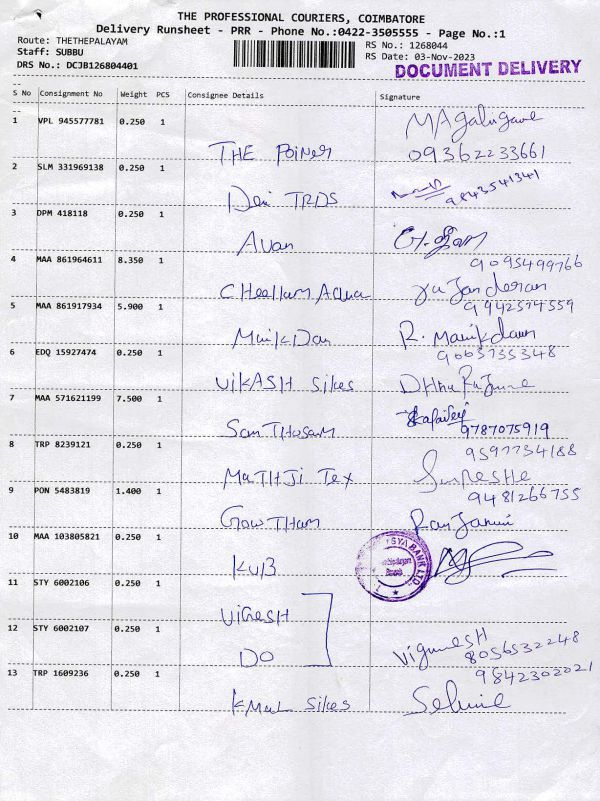 THE PROFESSIONAL COURIERS, COIMBATORE
Delivery Runsheet - PRR - Phone No.:0422-3505555 - Page No.:1
Route: THETHEPALAYAM
RS No.: 1268044
Staff: SUBBU
RS Date: 03-Nov-2023
DRS No.: DCJB126804401
DOCUMENT DELIVERY
S No Consignment No Weight PCS Consignee Details Signature
1 VPL 945577781 0.250 1
THE Poiner 09362233661
2 SLM 331969138 0.250 1
Devi TRDS 9843541341
3 DPM 418118 0.250 1
Avan
4 MAA 861964611 8.350 1 9095499766
CHellam Aqua
5 MAA 861917934 5.900 1 9942574559
ManikDan R. Manikdan
6 EDQ 15927474 0.250 1 9005735348
VIKASH Silkes
7 MAA 571621199 7.500 1
SanTHosam 9787075919
8 TRP 8239121 0.250 1 9597734188
MaTHJi Tex
9 PON 5483819 1.400 1 9481266755
GowTHam Ranjanni
10 MAA 103805821 0.250 1
KVB
11 STY 6002106 0.250 1
VIGESH
12 STY 6002107 0.250 1
DO Vignesh 8056532248
13 TRP 1609236 0.250 1 9842302021
KMaL Silkes